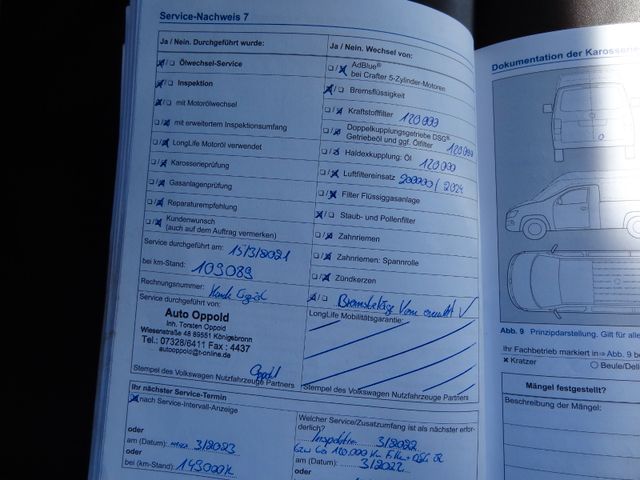 Service-Nachweis 7
Ja / Nein. Durchgeführt wurde:
Ölwechsel-Service
Inspektion
mit Motorölwechsel
mit erweitertem Inspektionsumfang
LongLife Motoröl verwendet
Karosserieprüfung
Gasanlagenprüfung
Reparaturempfehlung
Kundenwunsch
(auch auf dem Auftrag vermerken)
Service durchgeführt am: 15/3/2021
bei km-Stand: 109089
Rechnungsnummer:
Service durchgeführt von:
Auto Oppold
Inh. Torsten Oppold
Wiesenstraße 48 89551 Königsbronn
Tel.: 07328/6411 Fax : 4437
autooppold@t-online.de
Oppold
Stempel des Volkswagen Nutzfahrzeuge Partners
Ja / Nein. Wechsel von:
AdBlue®
bei Crafter 5-Zylinder-Motoren
Bremsflüssigkeit
Kraftstofffilter 120 000
Doppelkupplungsgetriebe DSG®
Getriebeöl und ggf. Ölfilter 120 000
Haldexkupplung: Öl 120 000
Luftfiltereinsatz 200000/2024
Filter Flüssiggasanlage
Staub- und Pollenfilter
Zahnriemen
Zahnriemen: Spannrolle
Zündkerzen
Bremsbeläge Vorn
LongLife Mobilitätsgarantie:
Stempel des Volkswagen Nutzfahrzeuge Partners
Ihr nächster Service-Termin
nach Service-Intervall-Anzeige
oder
am (Datum): 3/2023
oder
bei (km-Stand): 149000
Welcher Service/Zusatzumfang ist als nächster erfor-
derlich?
Inspektion 3/2022
120.000 Km
am (Datum): 3/2022
oder
Dokumentation der Karosserie
Abb. 9 Prinzipdarstellung. Gilt für alle
Ihr Fachbetrieb markiert in Abb. 9 be
Kratzer
Beule/Del
Mängel festgestellt?
Beschreibung der Mängel: